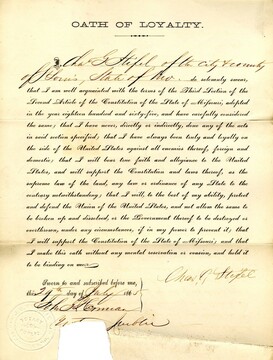 OATH OF LOYALTY.
I, Chas G Stifel, of the city & county
of St Louis, State of Mo. do solemnly swear,
that I am well acquainted with the terms of the Third Section of the
Second Article of the Constitution of the State of Missouri, adopted
in the year eighteen hundred and sixty-five, and have carefully considered
the same; that I have never, directly or indirectly, done any of the acts
in said section specified; that I have always been truly and loyally on
the side of the United States against all enemies thereof, foreign and
domestic; that I will bear true faith and allegiance to the United
States, and will support the Constitution and laws thereof, as
the supreme law of the land, any law or ordinance of any State to the
contrary notwithstanding; that I will, to the best of my ability, protect
and defend the Union of the United States, and not allow the same to
be broken up and dissolved, or the Government thereof to be destroyed or
overthrown, under any circumstances, if in my power to prevent it; that
I will support the Constitution of the State of Missouri; and that I
make this oath without any mental reservation or evasion, and hold it
to be binding on me.
Chas G Stifel
Sworn to and subscribed before me,
this day of July 1865
Notary Public